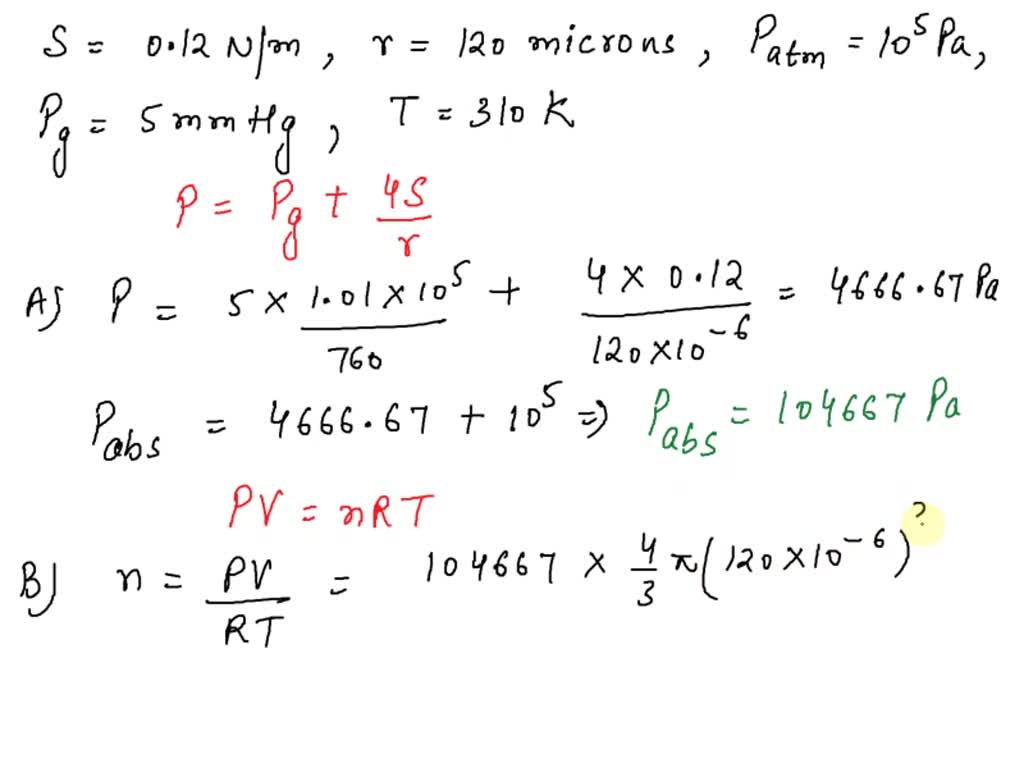 S = 0.12 N/m, r = 120 microns, Patm = 10⁵ Pa,
Pg = 5 mmHg, T = 310 K
P = Pg + 4S/r
A) P = 5 × 1.01 × 10⁵/760 + 4 × 0.12/120×10⁻⁶ = 4666.67 Pa
Pabs = 4666.67 + 10⁵ ⇒ Pabs = 104667 Pa
PV = nRT
B) n = PV/RT = 104667 × 4/3 π(120×10⁻⁶)